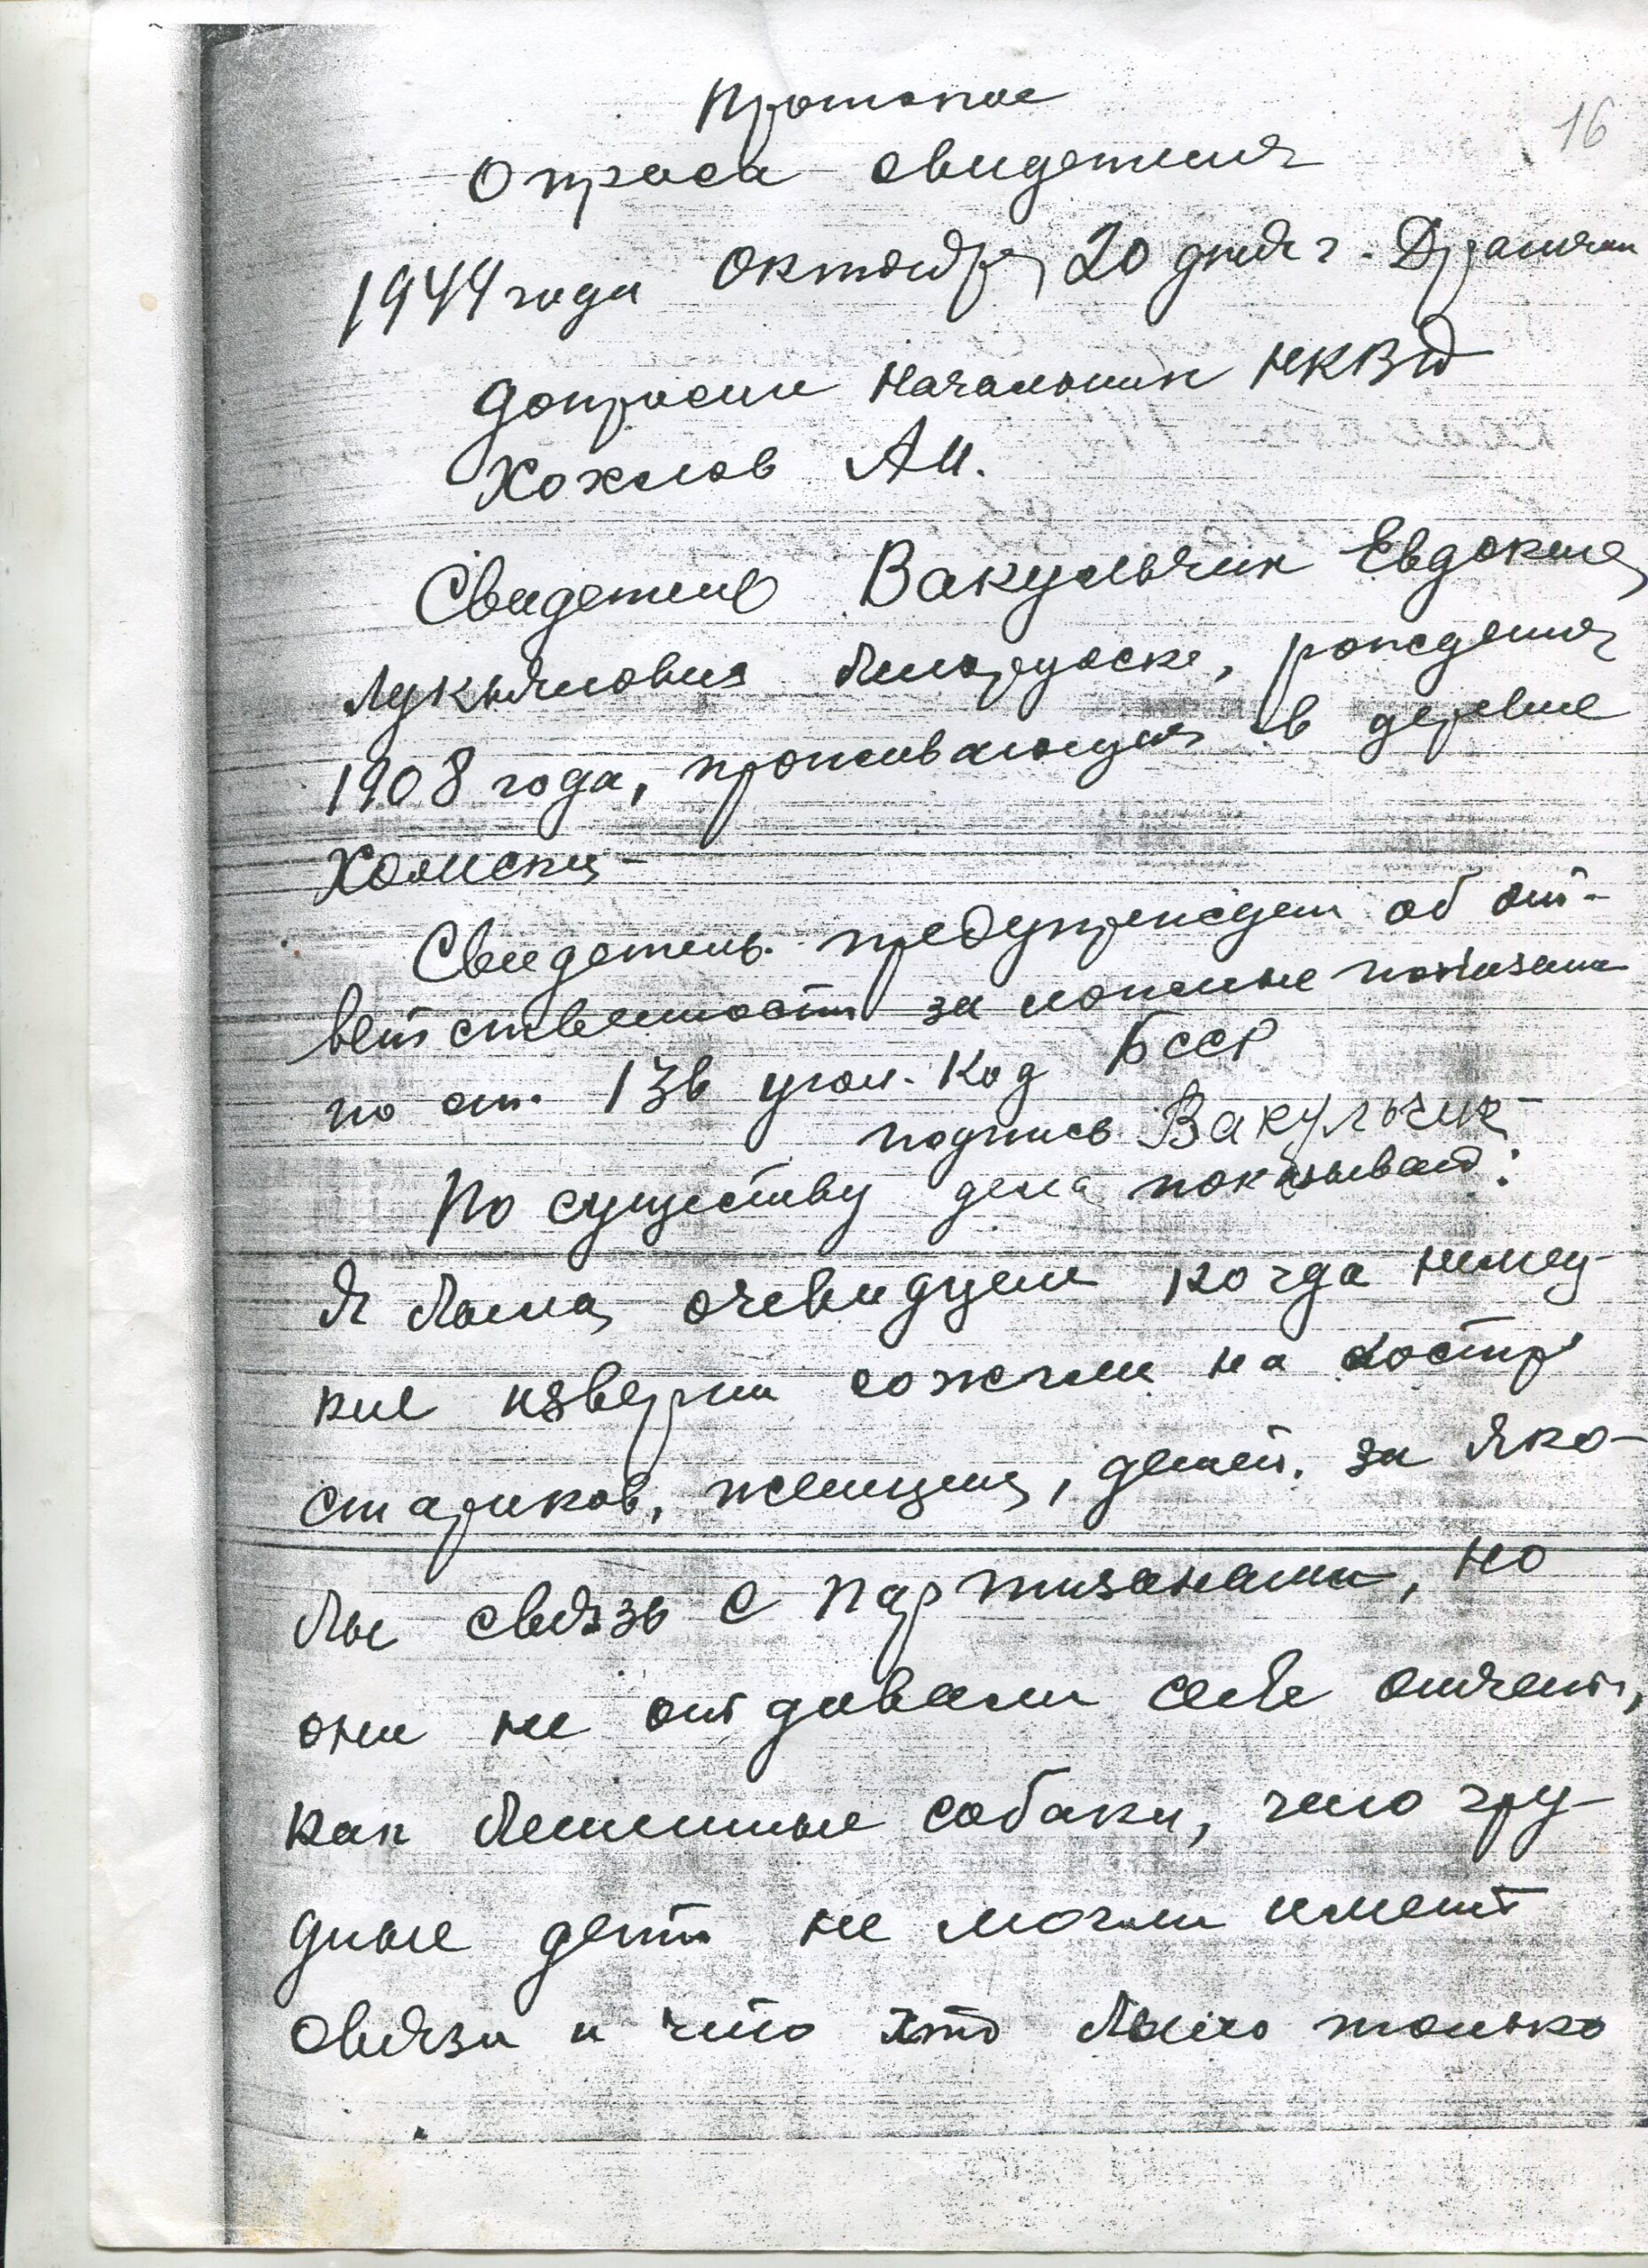 Протокол
16
Опроса свидетеля
1944 года Октября 20 дня г. Драгичин
допросил начальник НКВД
Хохлов А.И.
Свидетель Вакульчик Евдокия
Лукьяновна белоруска, рождения
1908 года, проживающия в деревне
Хомск
Свидетель предупрежден об от-
ветственности за ложные показания
по ст. 136 угол. Код БССР
подпись Вакульчик
По существу дела показываю:
Я была очевидцем когда немец-
кие изверги сожгли на костре
стариков, женщин, детей. за яко-
бы связь с партизанами, но
они не отдавали себе отчет,
как бешенные собаки, что гру-
дные дети не могли иметь
связи и что это было только